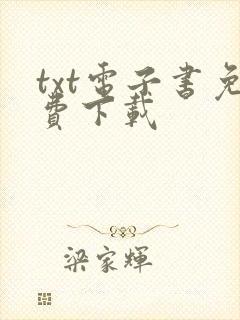 txt電子書免
費下載
梁家輝